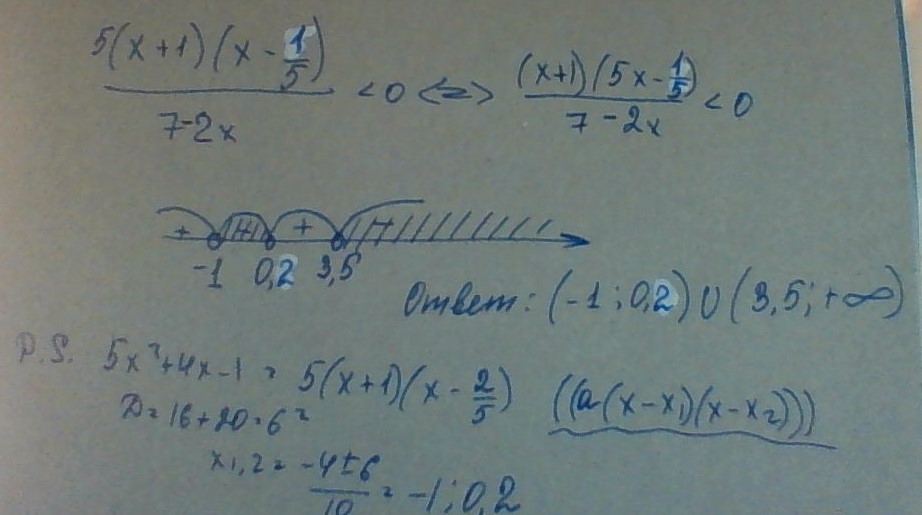 5(x+1)(x - 1/5) / 7-2x < 0 <=> (x+1)(5x - 1/5) / 7-2x < 0
+ + 
-1 0,2 3,5
Ответ: (-1; 0,2) U (3,5; +∞)
P.S. 5x²+4x-1 = 5(x+1)(x - 2/5) ((a(x-x₁)(x-x₂)))
D=16+20=6²
x1,2 = -4±6 / 10 = -1; 0,2